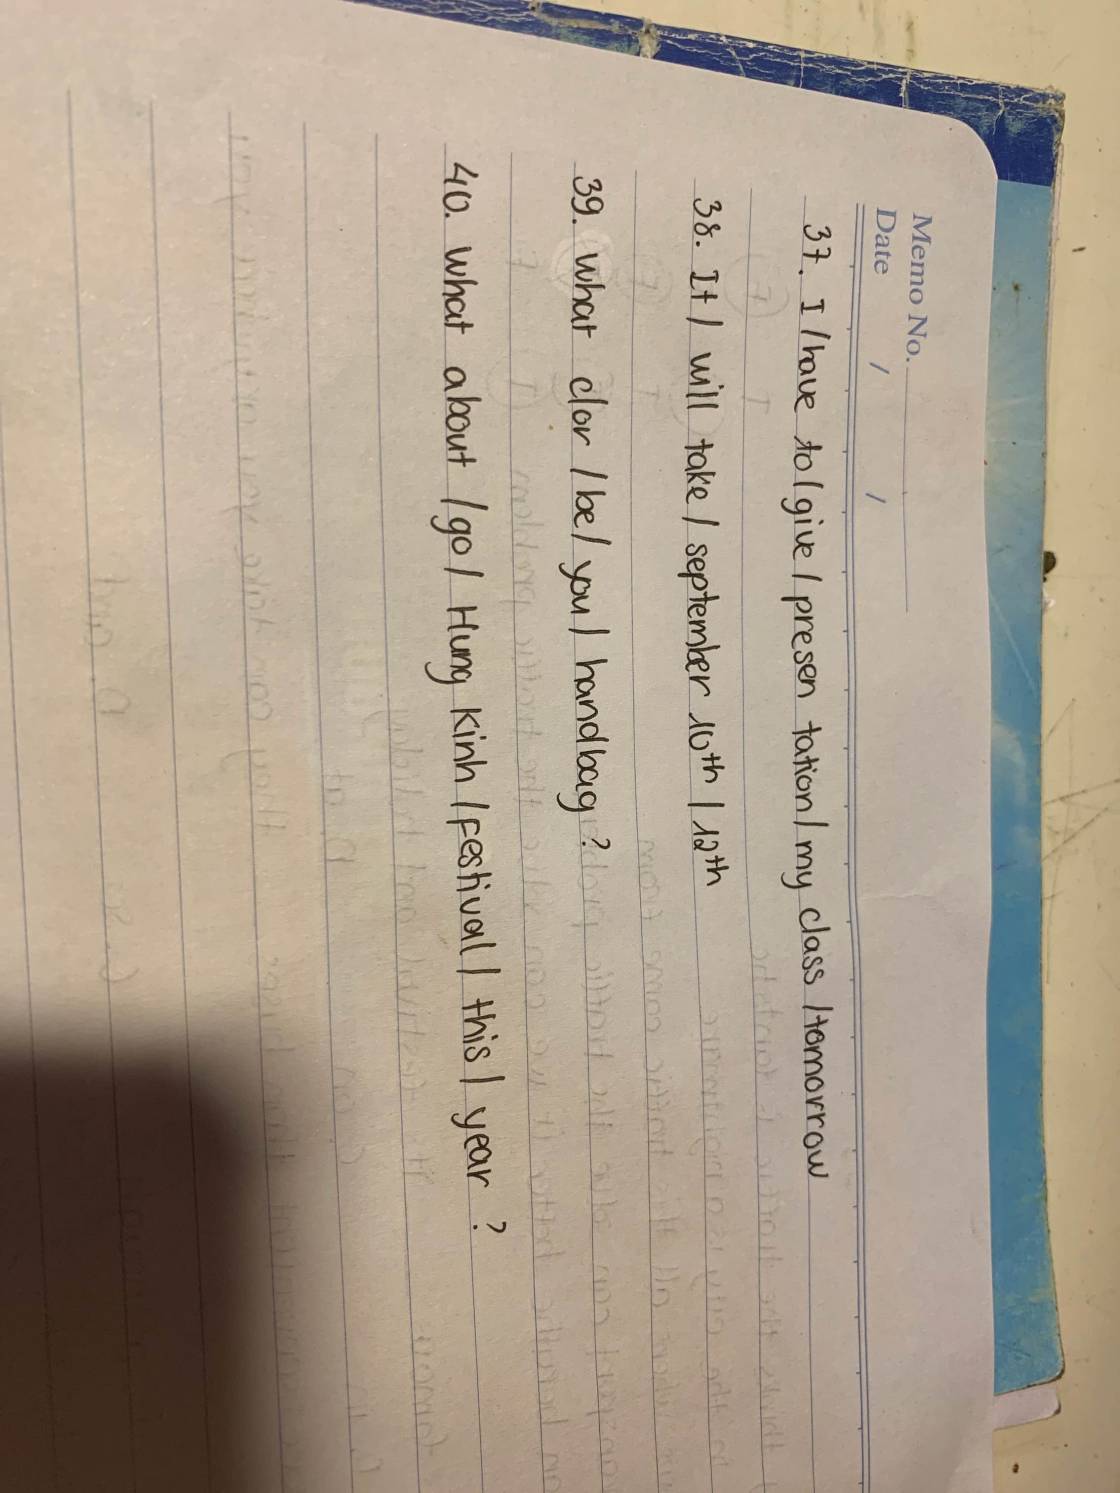 Memo No.
Date / /
37. I / have to / give / presen tation / my class / tomorrow
38. It / will take / september 10th / 12th
39. What clor / be / you / handbag ?
40. What about / go / Hung Kinh / Festival / this / year ?